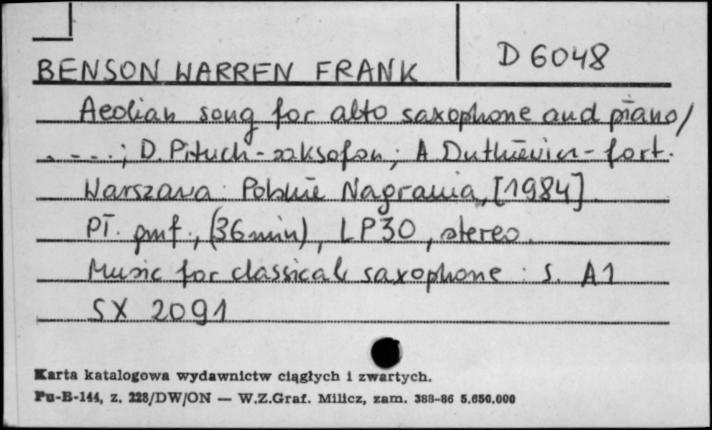 D 6048
BENSON WARREN FRANK
Aeolian song for alto saxophone and piano/
. - - - -; D. Pituch - saksofon; A Dutkiewicz - fort.
Warszawa: Polskie Nagrania, [1984]
Pł. gmf., (36 min), LP30, stereo.
Music for classical saxophone: s. A1
SX 2091
Karta katalogowa wydawnictw ciągłych i zwartych.
Pu-B-144, z. 228/DW/ON — W.Z.Graf. Milicz, zam. 388-86 5.650.000